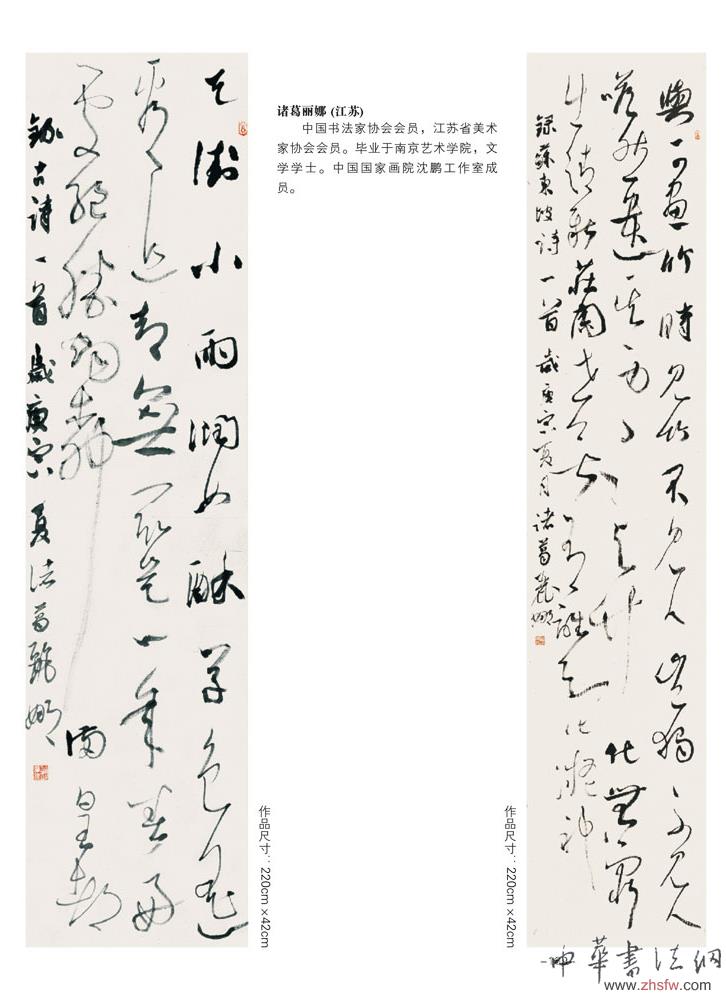 天街小雨潤如酥草色遥
看近却無最是一年春好
處絕勝烟柳滿皇都
錄古詩一首歲庚寅夏諸葛麗娜
作品尺寸：220cm×42cm
诸葛丽娜 (江苏)
中国书法家协会会员，江苏省美术
家协会会员。毕业于南京艺术学院，文
学学士。中国国家画院沈鹏工作室成
员。
與可畫竹時見竹不見人豈獨不見人
嗒然遺其身其身与竹化無窮
出清新莊周世無有誰知此凝神
錄蘇東坡詩一首歲庚寅夏月諸葛麗娜
作品尺寸：220cm×42cm
中華書法網
www.zhsfw.com